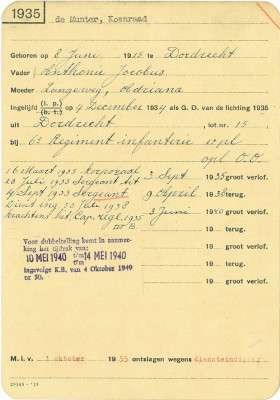 1935
de Munter, Koenraad
Geboren op 8 Juni 1915 te Dordrecht
Vader Anthonie Jacobus
Moeder Langerweg, Adriana
Ingelijfd (i. p.) (b. t.) op 4 December 1934 als G. D. van de lichting 1935
uit Dordrecht, lot.nr. 15,
bij 6e Regiment infanterie
opl. O.O.
16 Maart 1935 Korporaal 3 Sept 1935 groot verlof.
Juli 1935 Sergeant tit
4 Sept 1935 Sergeant 9 April 1936 terug.
Dienstring 30 Juli 1938
krachtens het Cap. regl. 1935 3 Juni 1940 groot verlof.
19 terug.
Voor dubbeltelling komt in aanmer-
king het tijdvak van:
10 MEI 1940 t/m 14 MEI 1940
ingevolge K.B. van 4 October 1949
nr 50.
19 groot verlof.
19 terug.
19 groot verlof.
19 terug.
19 groot verlof.
M. i. v. 1 oktober 1955 ontslagen wegens diensteindiging
29503 - '39